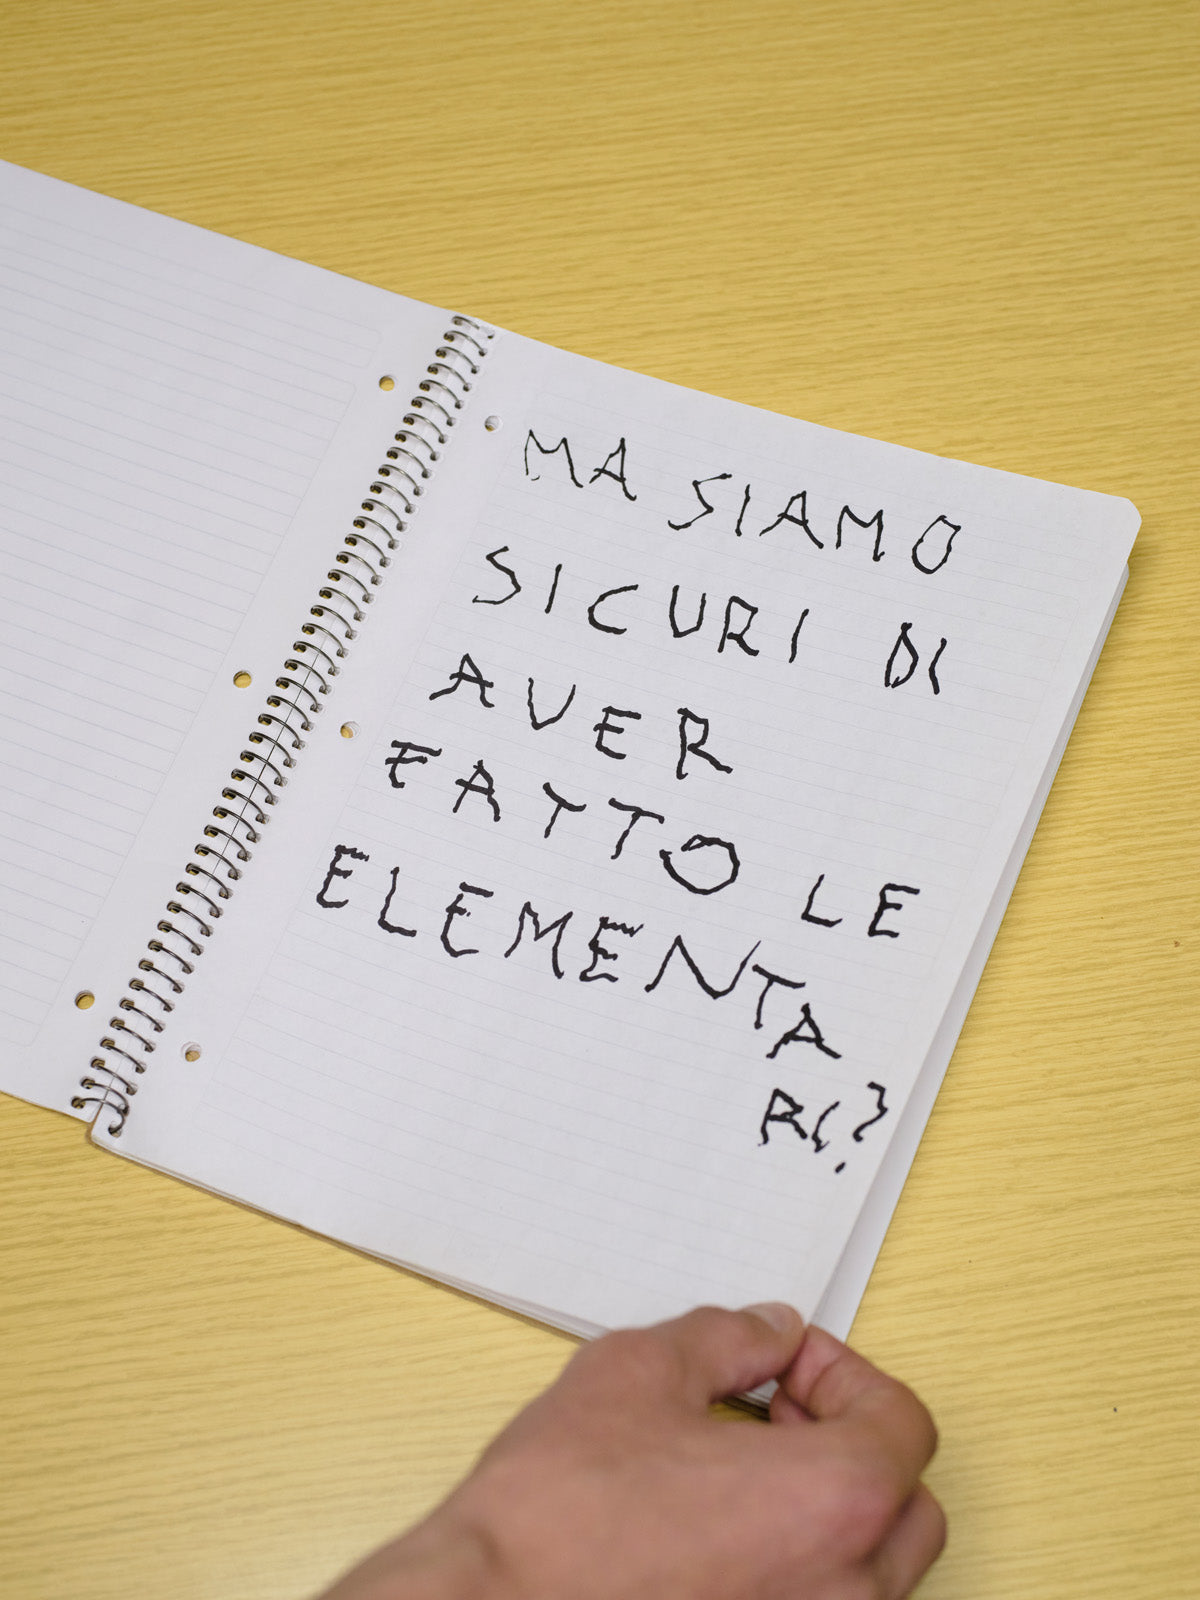 MA SIAMO
SICURI DI
AVER
FATTO LE
ELEMENTA
RI?